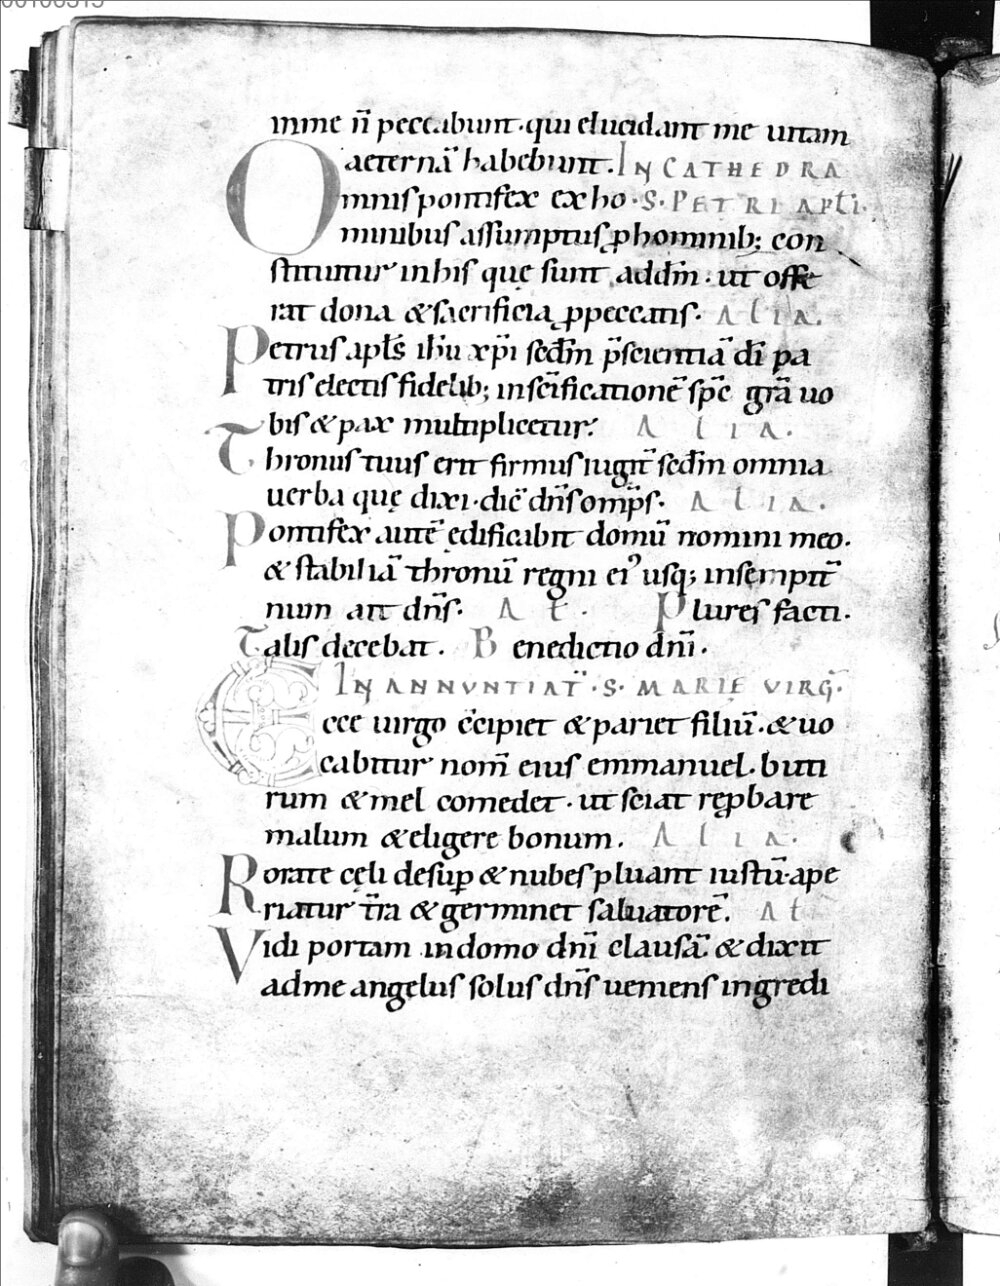 inme n̄ peccabunt. qui elucidant me uitam
aeternā habebunt. IN CATHEDRA
Omnis pontifex ex ho. S. PETRI APLI.
minibus assumptus ꝓ hominib; con
stituitur in his quę sunt ad dm̄. ut offe
rat dona & sacrificia ꝓ peccatis. ALIA.
Petrus apl̄s ihū xp̄i scdm̄ p̄scientiā dī pa
tris electis fidelib; in scīficationē sp̄c grā uo
bis & pax multiplicetur. ALIA.
Thronus tuus erit firmus iugit̄ scdm̄ omnia
uerba quę dixi. dic̄ dn̄s omp̄s. ALIA.
Pontifex autē ędificabit domū nomini meo.
& stabiliā thronū regni eiꝰ usq; in sempit̄
num ait dn̄s. At. Plures facti.
Talis decebat. Benedictio dn̄i.
IN ANNVNTIAT̄. S. MARIE VIRḠ.
Ecce uirgo c̄cipiet & pariet filiū. & uo
cabitur nom̄ eius emmanuel. buti
rum & mel comedet. ut sciat reꝓbare
malum & eligere bonum. ALIA.
Rorate cęli desuꝑ & nubes pluant iustū. ape
riatur tr̄a & germinet saluatorē. At
Vidi portam in domo dn̄i clausā. & dixit
ad me angelus solus dn̄s ueniens ingredi